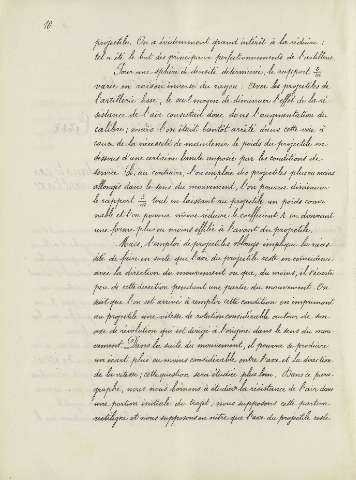 10.
projectiles. On a évidemment grand intérêt à la réduire ;
tel a été le but des principaux perfectionnements de l'artillerie.
Pour une sphère de densité déterminée, le rapport
varie en raison inverse du rayon. Avec les projectiles de
l'artillerie lisse, le seul moyen de diminuer l'effet de la ré-
sistance de l'air consistait donc dans l'augmentation du
calibre ; encore l'on était bientôt arrêté dans cette voie à
cause de la nécessité de maintenir le poids du projectile au-
dessous d'une certaine limite imposée par les conditions de
service. Si, au contraire, l'on emploie des projectiles plus ou moins
allongés dans le sens du mouvement, l'on pourra diminuer
le rapport tout en laissant au projectile un poids conve-
nable et l'on pourra même réduire le coefficient K en donnant
une forme plus ou moins effilée à l'avant du projectile.
Mais, l'emploi de projectiles oblongs implique la néces-
sité de faire en sorte que l'axe du projectile reste en coïncidence
avec la direction du mouvement ou que, du moins, il s'écarte
peu de cette direction pendant une partie du mouvement. On
sait que l'on est arrivé à remplir cette condition en imprimant
au projectile une vitesse de rotation considérable autour de son
axe de révolution qui est dirigé à l'origine dans le sens du mou-
vement. Dans la suite du mouvement, il pourra se produire
un écart plus ou moins considérable entre l'axe et la direction
de la vitesse ; cette question sera étudiée plus loin. Dans ce para-
graphe, nous nous bornons à étudier la résistance de l'air dans
une portion initiale du trajet, nous supposons cette portion
rectiligne et nous supposons en outre que l'axe du projectile reste